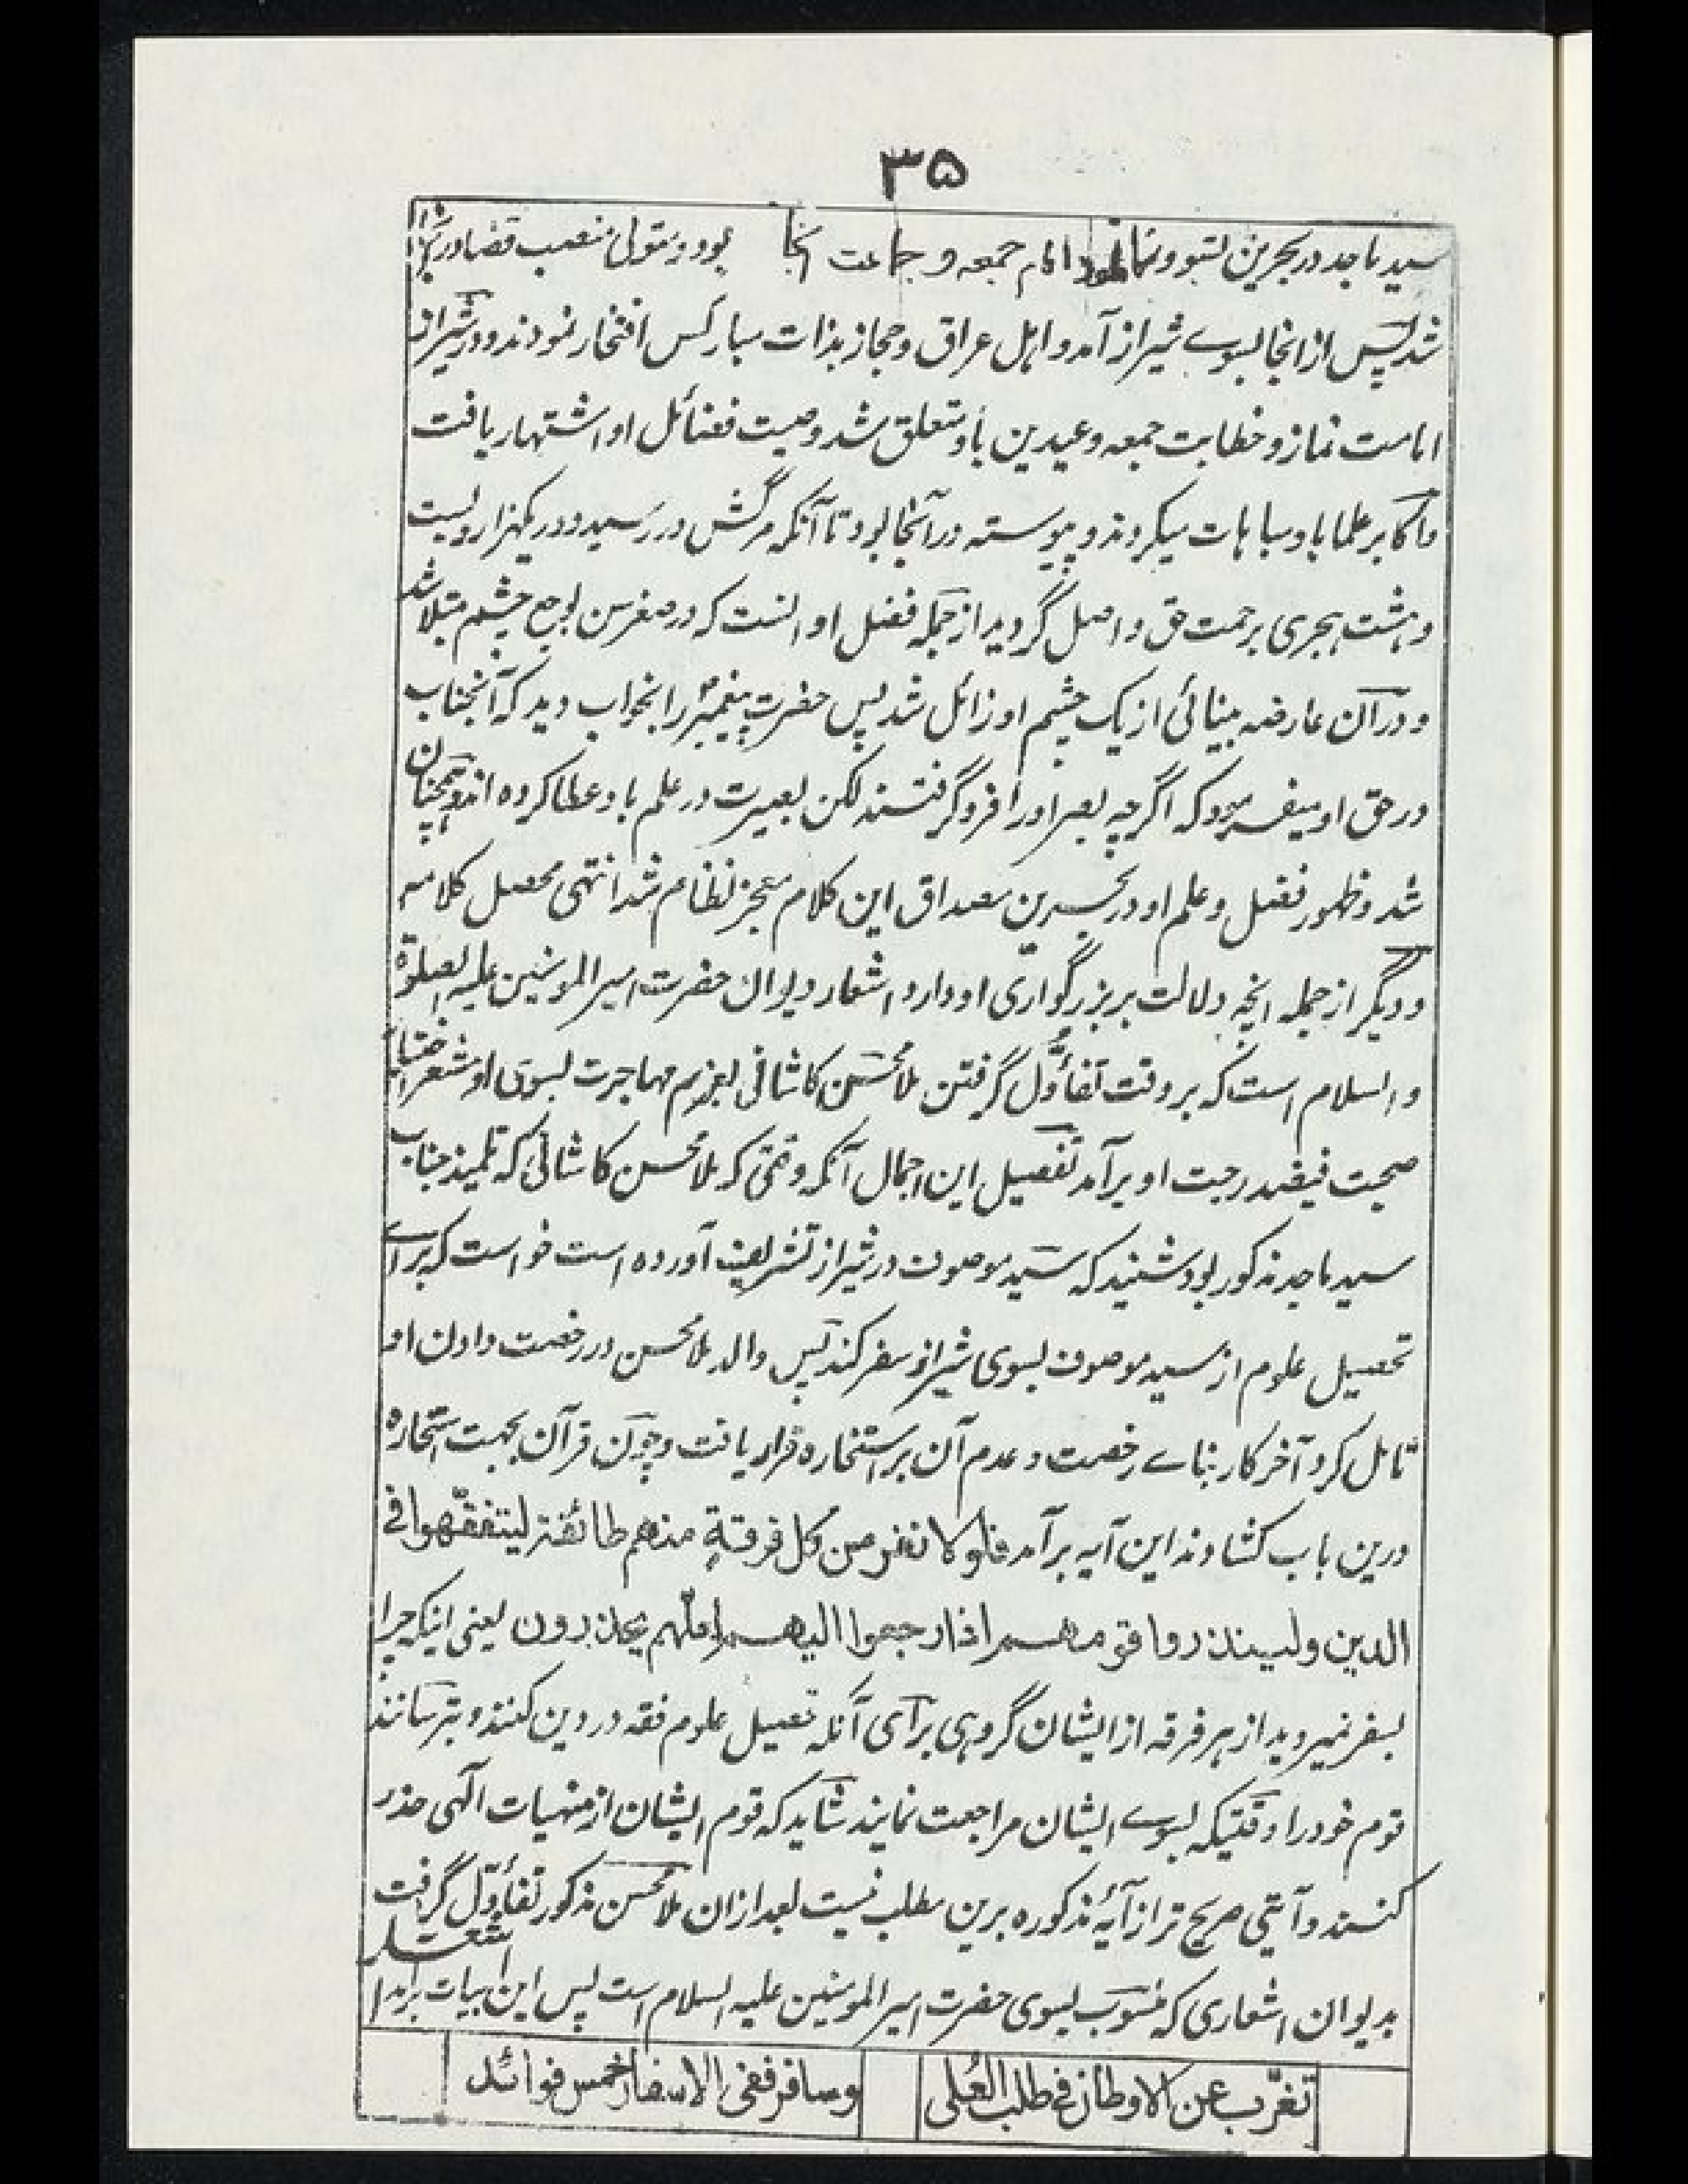 ۳۵
سید ماجد در بحرین نشو و نما نمود امام جمعه و جماعت آنجا بود و متولی منصب قضا در
شد پس از انجا بسوے شیراز آمد و اہل عراق و حجاز بذات مبارکش افتخار نمودند و در شیراز
امامت نماز و خطابت جمعه و عیدین باو متعلق شد و صیت فضائل او اشتہار یافت
و اکابر علما باو مباہات میکردند و پیوسته در آنجا بود تا آنکه مرگش در رسید و در یکہزار و بست
و ہشت ہجری برحمت حق واصل گردید از جمله فضل او انست که در صغر سن بوجع چشم مبتلا شد
و در آن عارضه بینائی از یک چشم او زائل شد پس حضرت پیغمبرؐ را بخواب دید که آنجناب
در حق او میفرمود که اگرچه بصر او را فرو گرفتند لکن بصیرت در علم باو عطا کرده اند و ہمچنان
شد و ظہور فضل و علم او در بحرین مصداق این کلام معجز نظام شد انتہی محصل کلامه
و دیگر از جمله انچه دلالت بر بزرگواری او دارد اشعار دیوان حضرت امیر المومنین علیه الصلوٰة
و السلام است که بر وقت تفأوّل گرفتن ملا محسن کاشانی بعزم مہاجرت بسوی او مشعر
صحبت فیضدرجت او برآمد تفصیل این اجمال آنکه وقتی که ملا محسن کاشانی که تلمیذ جناب
سید ماجد مذکور بود شنید که سید موصوف در شیراز تشریف آورده است خواست که براے
تحصیل علوم از سید موصوف بسوی شیراز سفر کند پس والد ملا محسن در رخصت دادن او
تامل کرد آخر کار بناے رخصت و عدم آن بر استخاره قرار یافت و چون قرآن بجہت استخاره
درین باب کشادند این آیه برآمد فلولا نفر من کل فرقةٍ منهم طائفة لیتفقّهوا فی
الدین ولینذروا قومهم اذا رجعوا الیهم لعلّهم یحذرون یعنی اینکه چرا
بسفر نمیروید از ہر فرقه از ایشان گروہی برای آنکه تحصیل علوم فقه در دین کنند و بترسانند
قوم خود را وقتیکه بسوے ایشان مراجعت نمایند شاید که قوم ایشان از منہیات الٰہی حذر
کنند و آیتی صریح تر از آیۂ مذکوره برین مطلب نیست بعد از ان ملا محسن مذکور تفأوّل گرفت
بدیوان اشعاری که منسوب بسوی حضرت امیر المومنین علیه السلام است پس این ابیات برآمد اشعار
تغرّب عن الاوطان فی طلب العُلی وسافر ففی الاسفار خمس فوائد